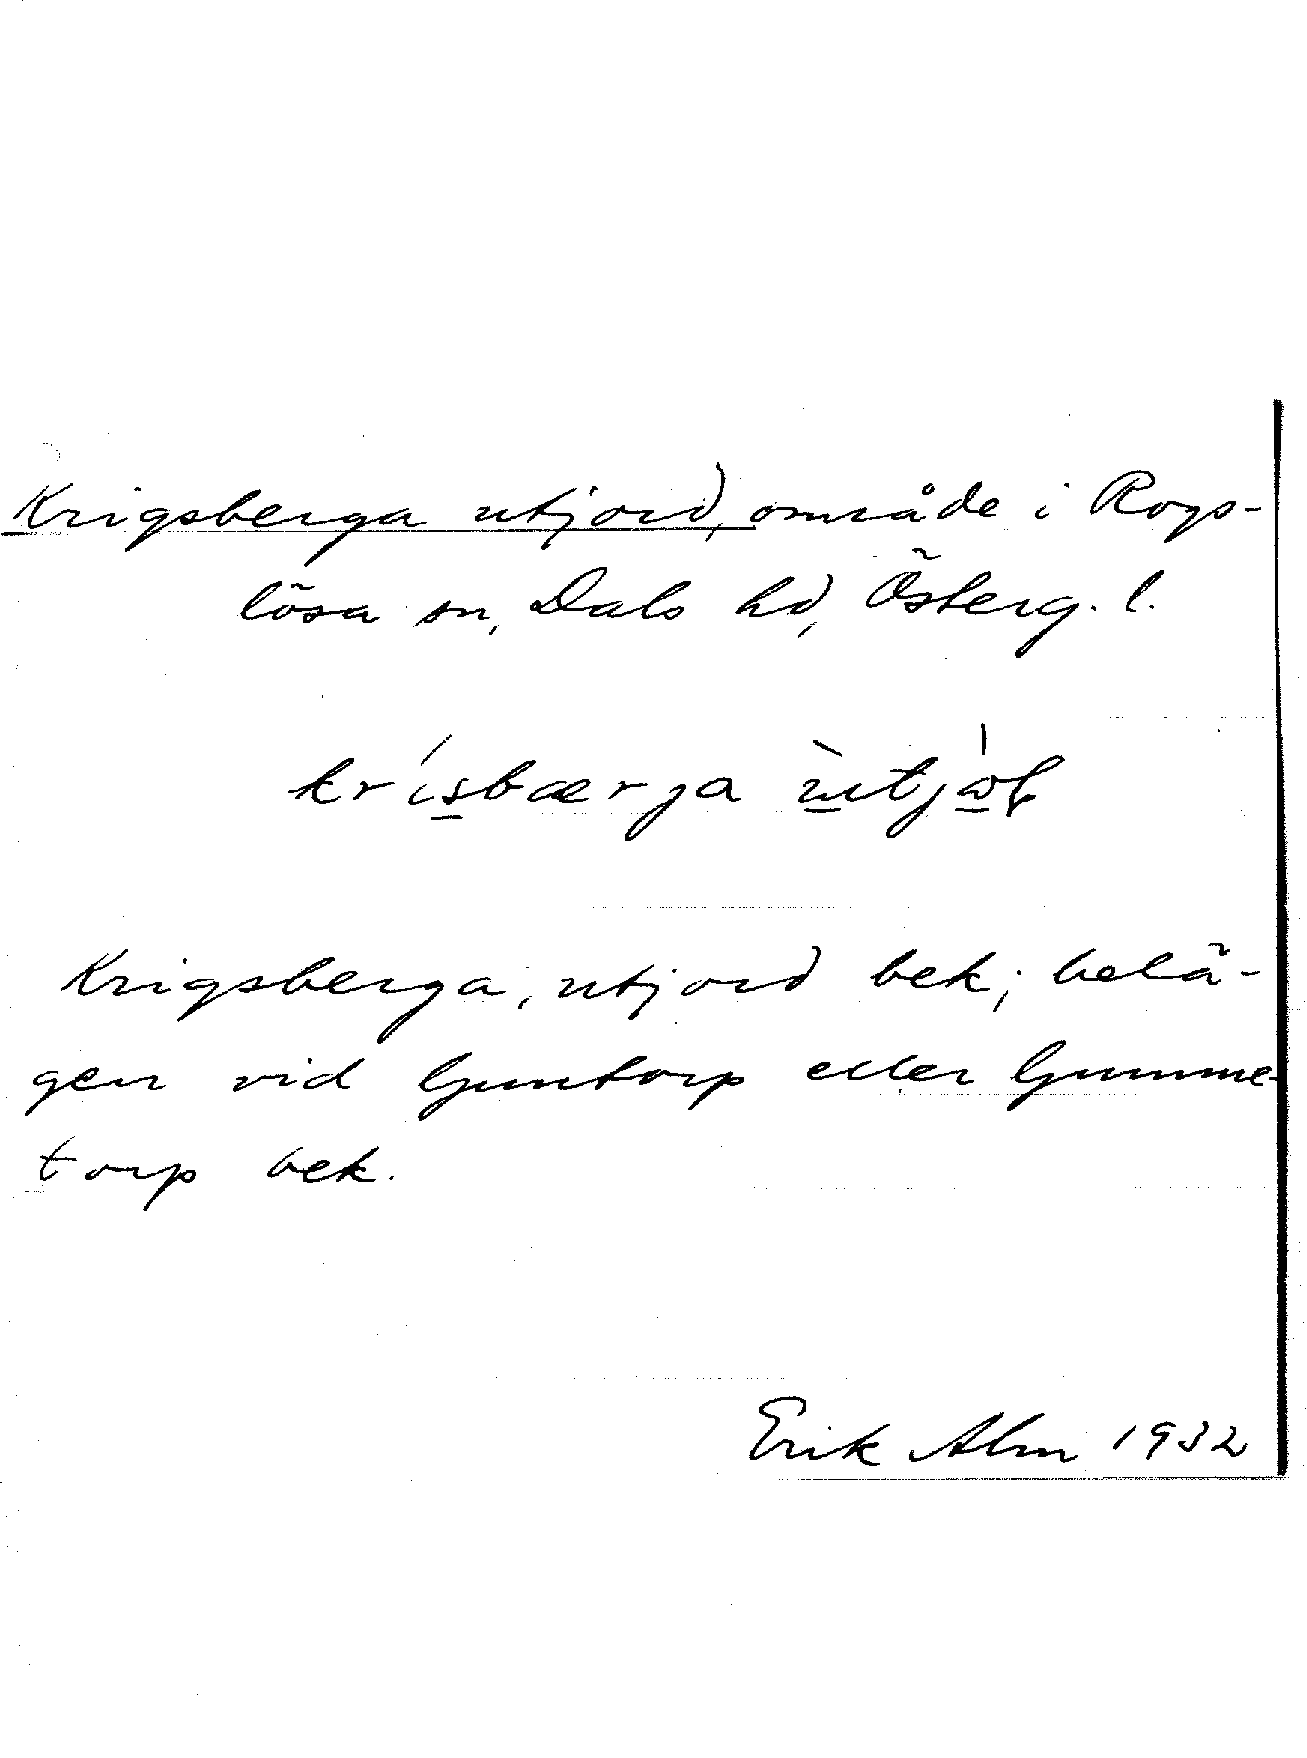 Krigsberga utjord, område i Rogs-
lösa sn, Dals hd, Österg. l.
krísbærja
Krigsberga, utjord bek; belä-
gen vid Guntorp eller Gumme-
torp bek.
Erik Alm 1932